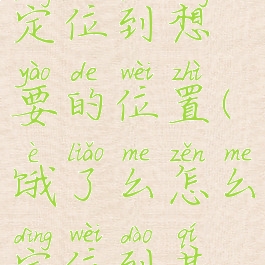 定位到想
yào de wèi zhì
要的位置(
è liǎo me zěn me
饿了么怎么
dìng wèi dào qí
定位到其